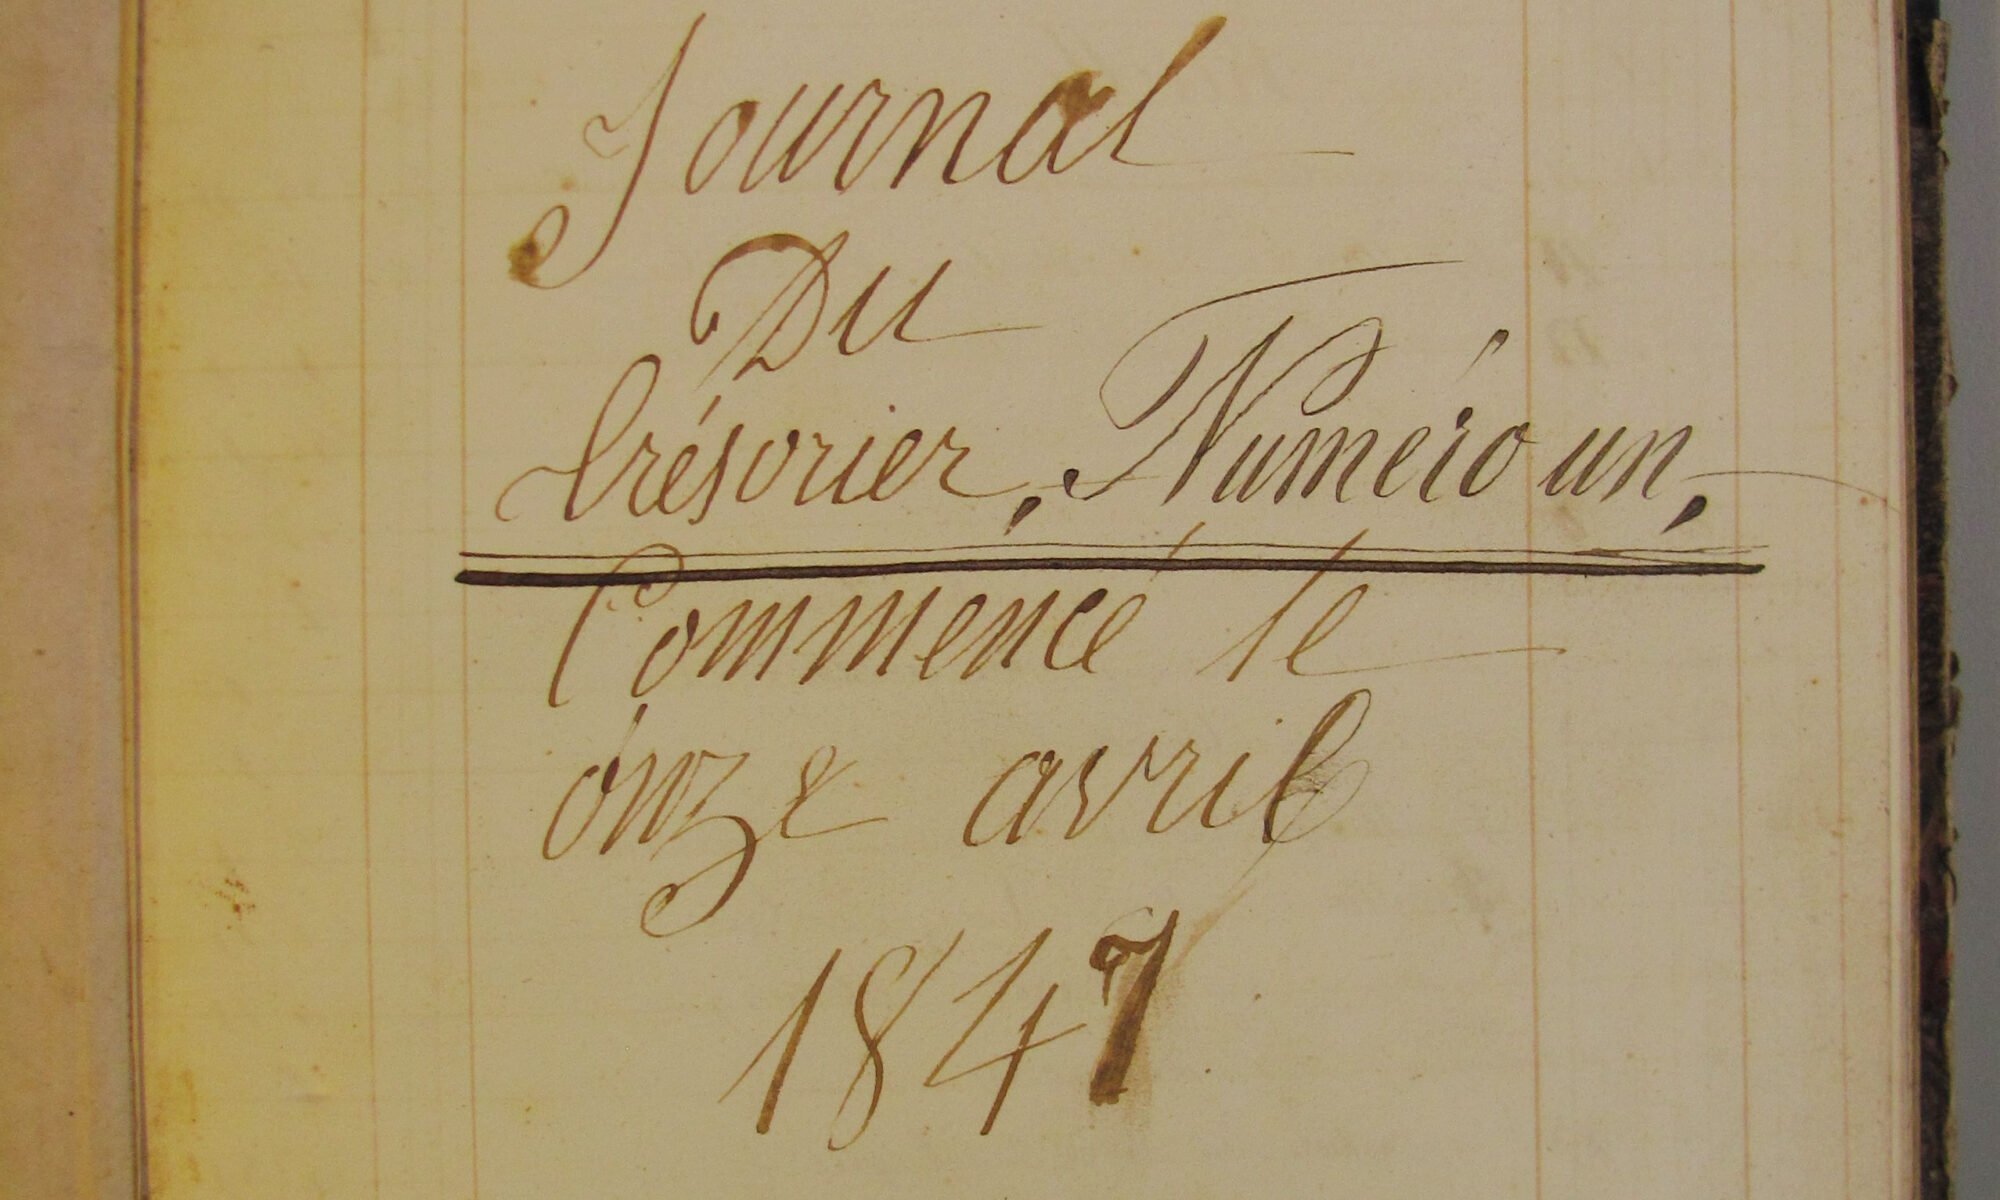 Journal
Du
trésorier, Numéro un,
Commencé le
onze avril
1847